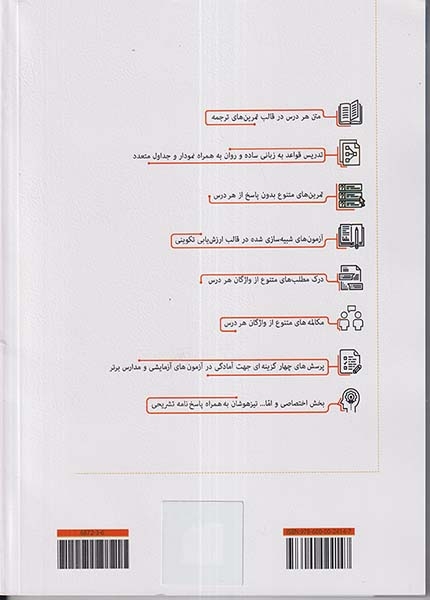 متن هر درس در قالب تمرین‌های ترجمه
تدریس قواعد به زبانی ساده و روان به همراه نمودار و جداول متعدد
تمرین‌های متنوع بدون پاسخ از هر درس
آزمون‌های شبیه‌سازی شده در قالب ارزش‌یابی تکوینی
درک مطلب‌های متنوع از واژگان هر درس
مکالمه های متنوع از واژگان هر درس
پرسش های چهار گزینه ای جهت آمادگی در آزمون های آزمایشی و مدارس برتر
بخش اختصاصی و امّا... تیزهوشان به همراه پاسخ نامه تشریحی